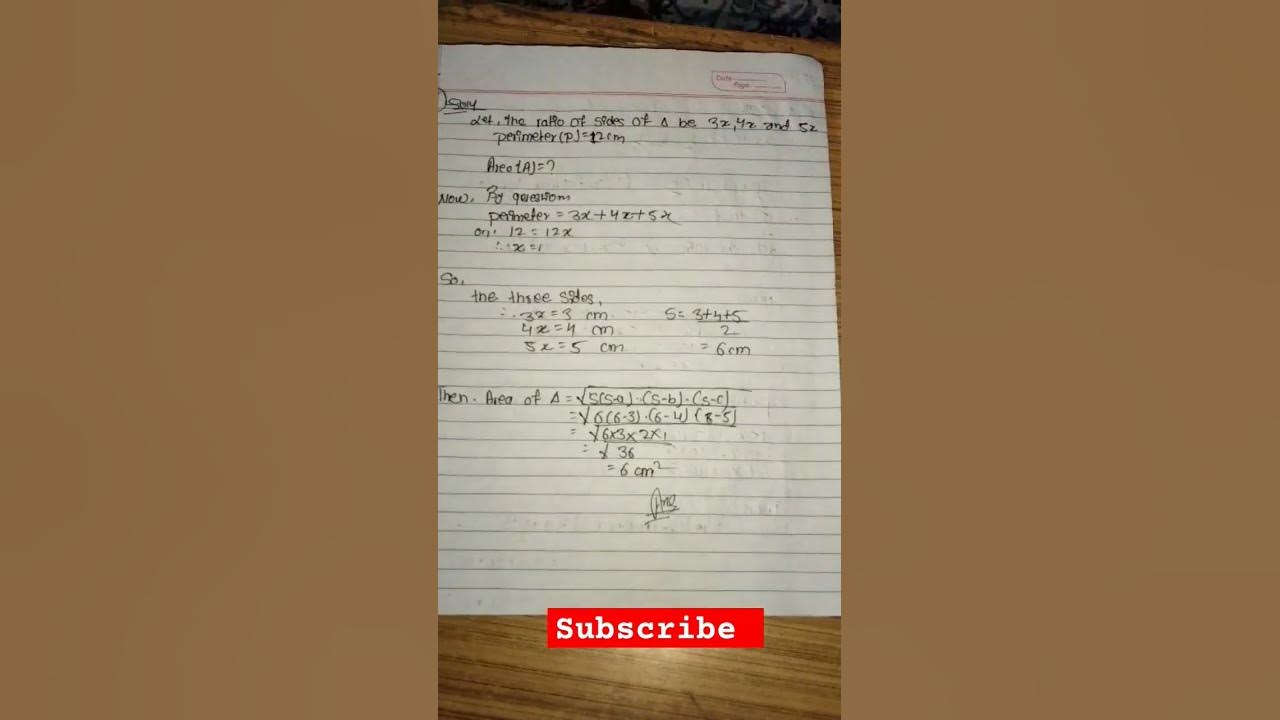 Date
Page
Soln
Let, the ratio of sides of Δ be 3x, 4x and 5x
perimeter(P)=12cm
Area(A)=?
Now, By question,
perimeter = 3x+4x+5x
or, 12 = 12x
∴ x=1
So,
the three sides,
∴ 3x=3 cm
4x=4 cm
5x=5 cm
S= 3+4+5
2
= 6cm
Then. Area of Δ = √S(S-a)·(S-b)·(S-c)
= √6(6-3)·(6-4)(6-5)
= √6x3x2x1
= √36
= 6 cm²
Ans
Subscribe